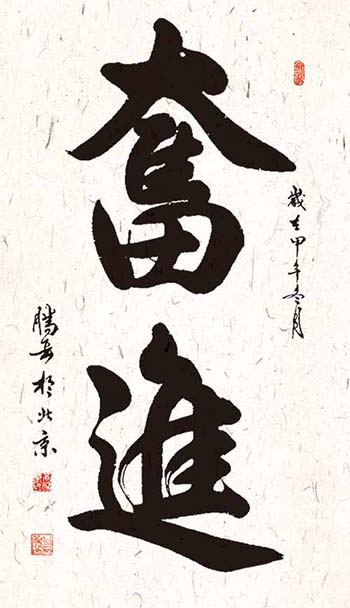 奮進
歲在甲午冬月
騰安於北京